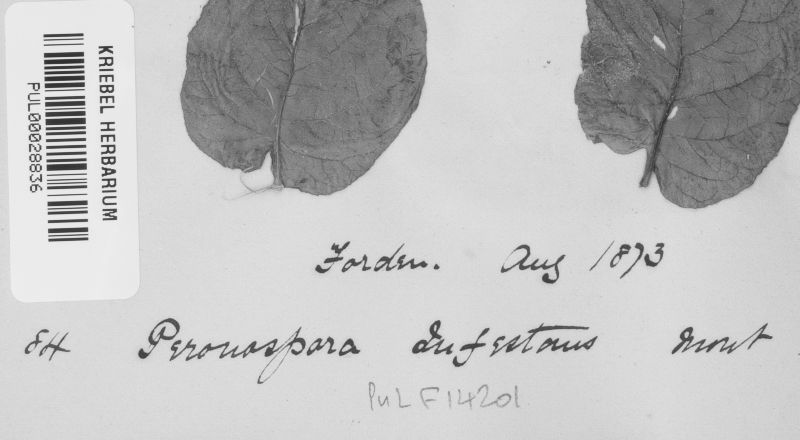 KRIEBEL HERBARIUM
PUL00028836
Forden. Aug 1873
84 Peronospora Infestans Mont
PUL F14201